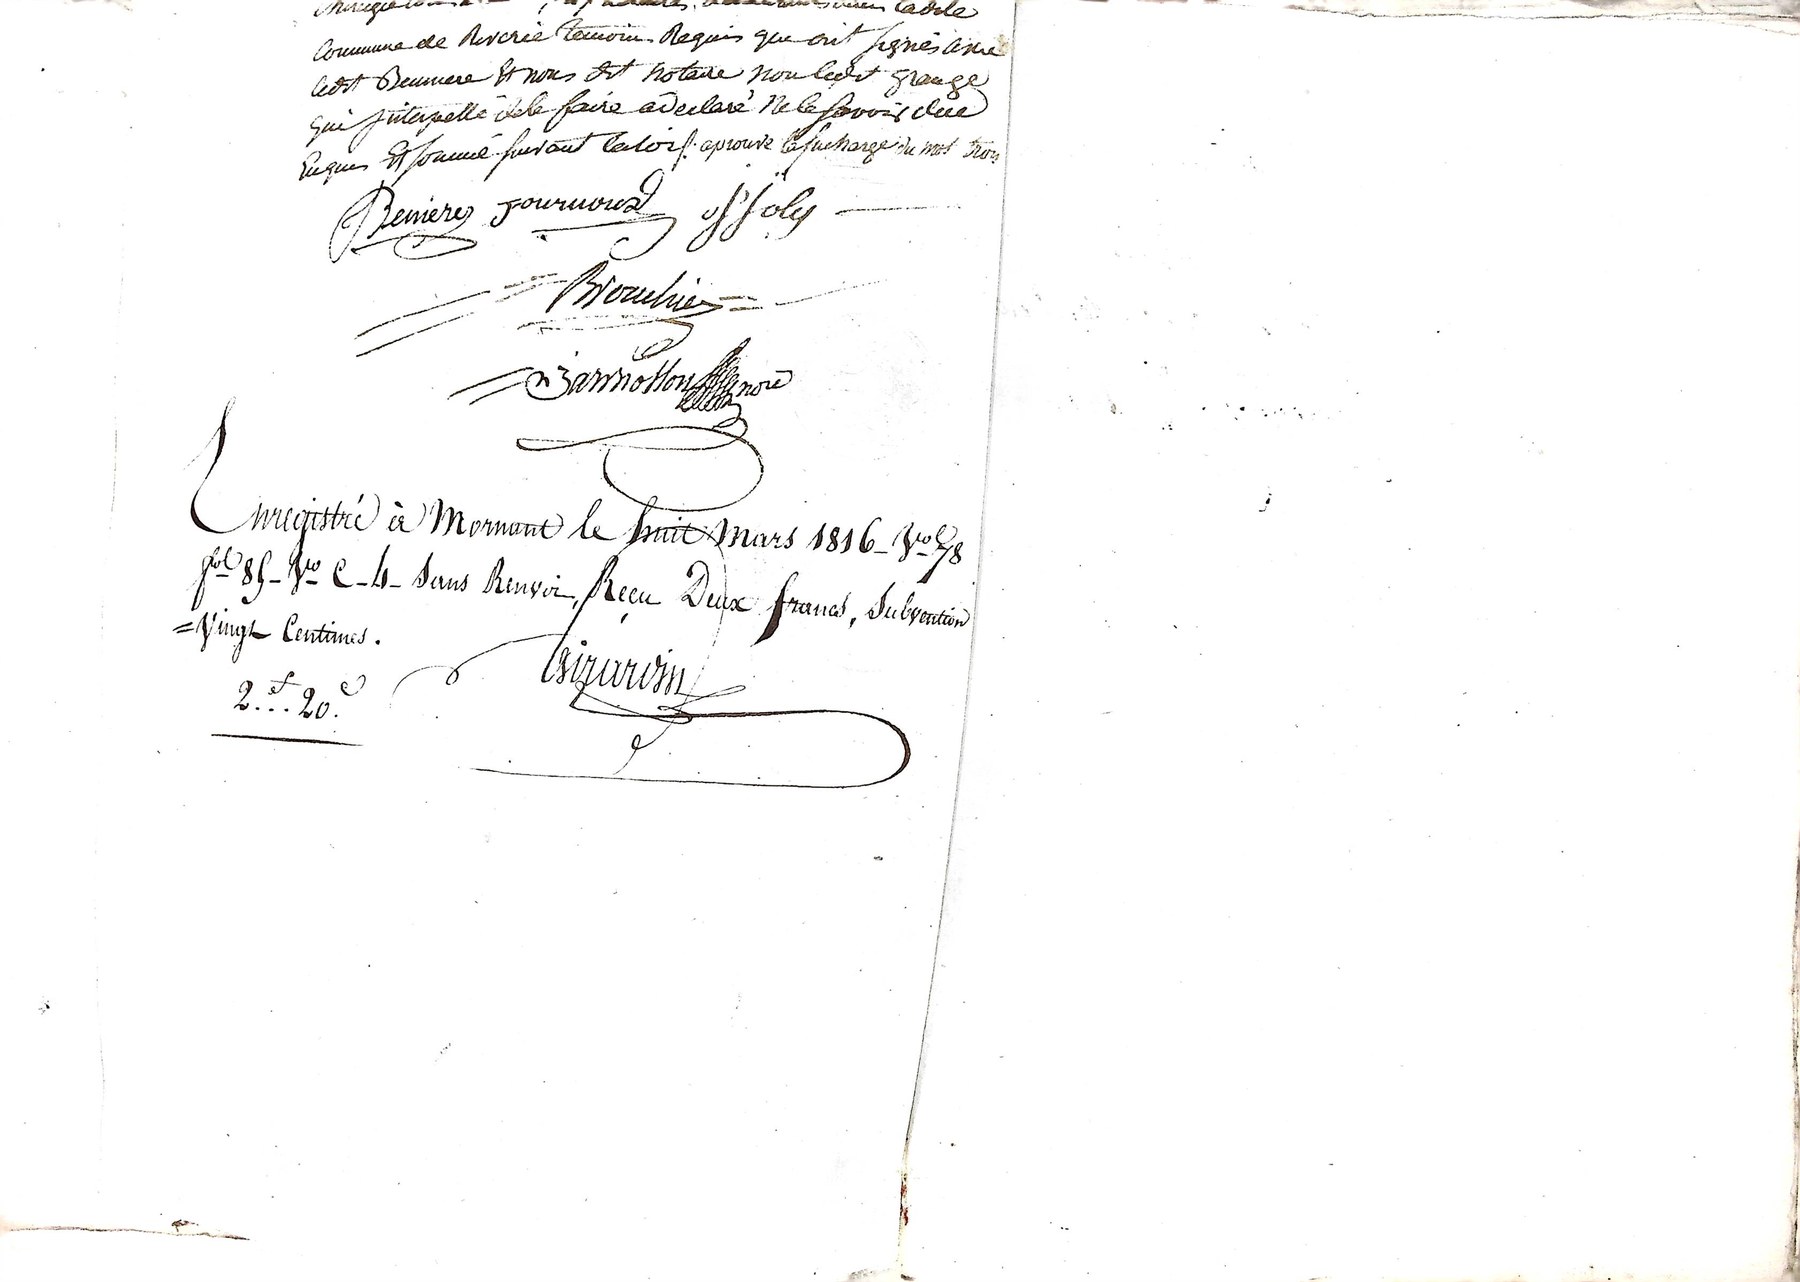 ladite
Commune de Riverie temoins Requis qui ont signés avec
ledit Benniere Et nous dit notaire non ledit grange
qui interpellé de le faire a déclaré Ne le savoir de ce
Enquis Et sommé suivant la loi /. aprouvé la surcharge du mot trois
Beniere fournoud Joly
Brouchier
nore
Enregistré à Mornant le huit Mars 1816 - Vol 78
fol 85 - Vo C - 4 - Sans Renvoi, Reçu Deux francs, Subvention
= Vingt Centimes.
Girardin
2.f.. 20.c